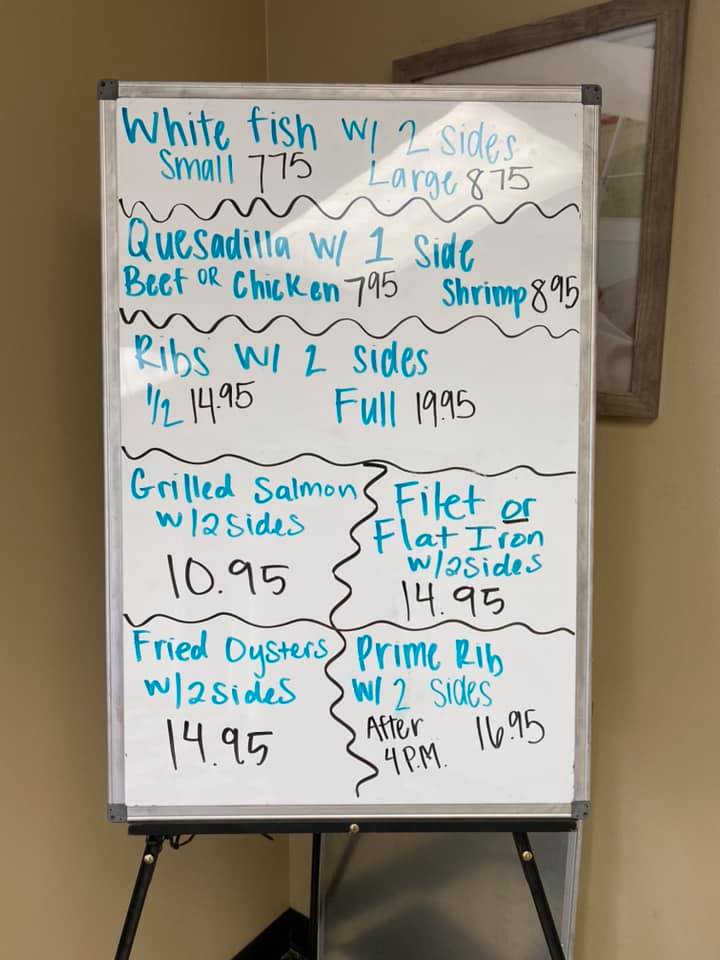 White fish w/ 2 sides
Small 775 Large 875
Quesadilla w/ 1 side
Beef OR Chicken 795 Shrimp 895
Ribs w/ 2 sides
1/2 14.95 Full 19.95
Grilled Salmon
w/2 sides
10.95
Filet or
Flat Iron
w/2 sides
14.95
Fried Oysters
w/2 sides
14.95
Prime Rib
w/ 2 sides
After
4 P.M. 16.95